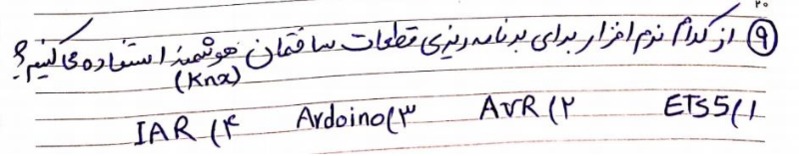 ۲۰
۹) از کدام نرم افزار برای برنامه ریزی قطعات ساختمان هوشمند استفاده می کنیم؟
(Knx)
۱) ETS5 ۲) AVR ۳) Ardoino ۴) IAR